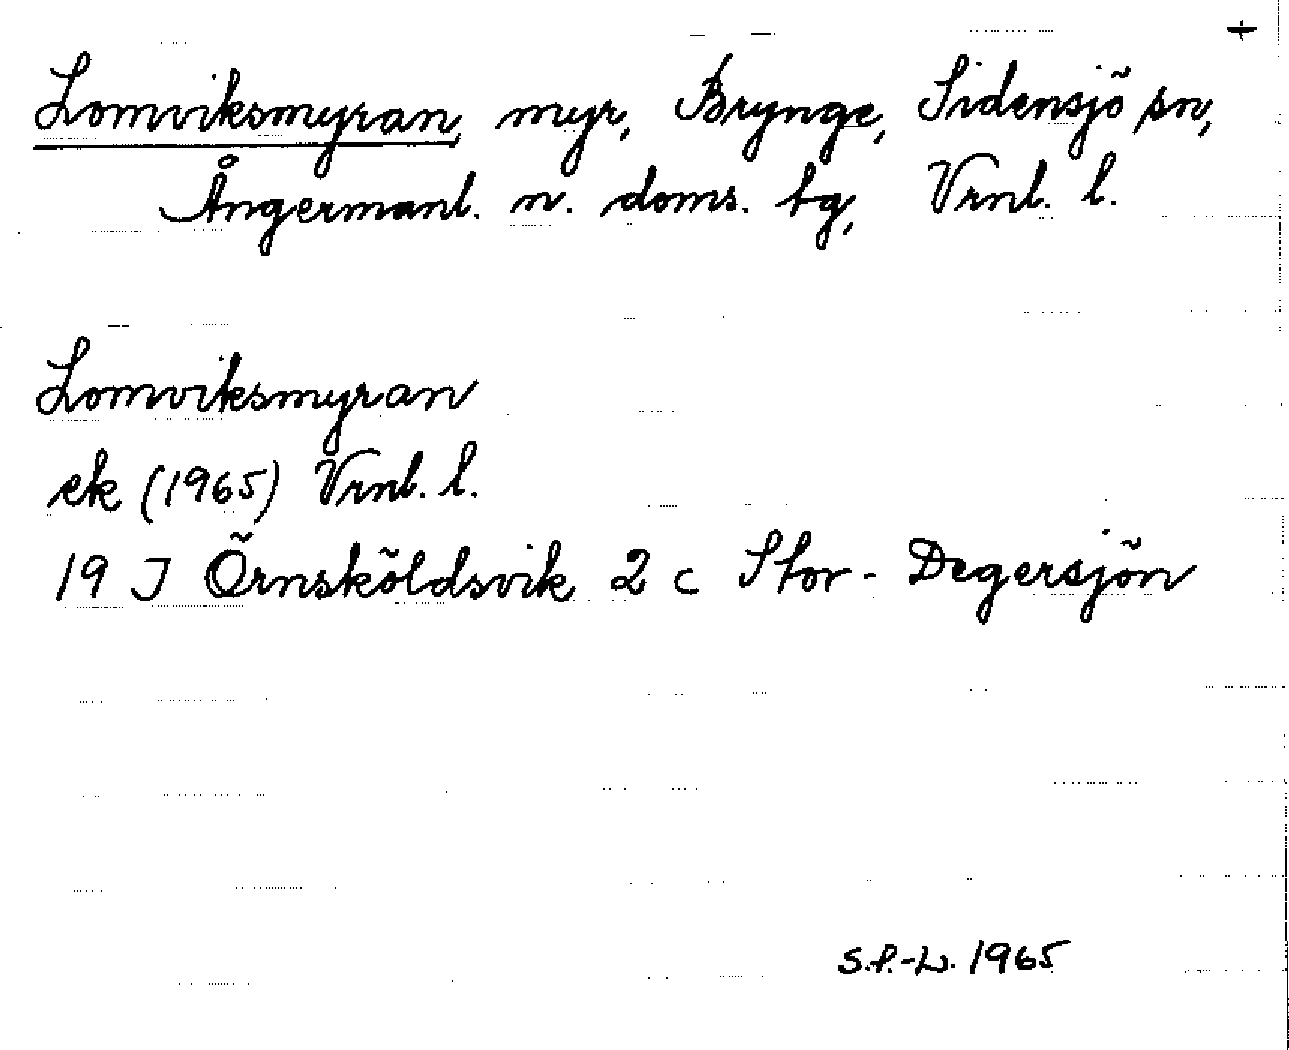 +
Lomviksmyran, myr, Brynge, Sidensjö sn,
Ångermanl. n. doms. tg, Vrnl. l.
Lomviksmyran
ek (1965) Vrnl. l.
19 J Örnsköldsvik 2 c Stor-Degersjön
S.P.-L. 1965